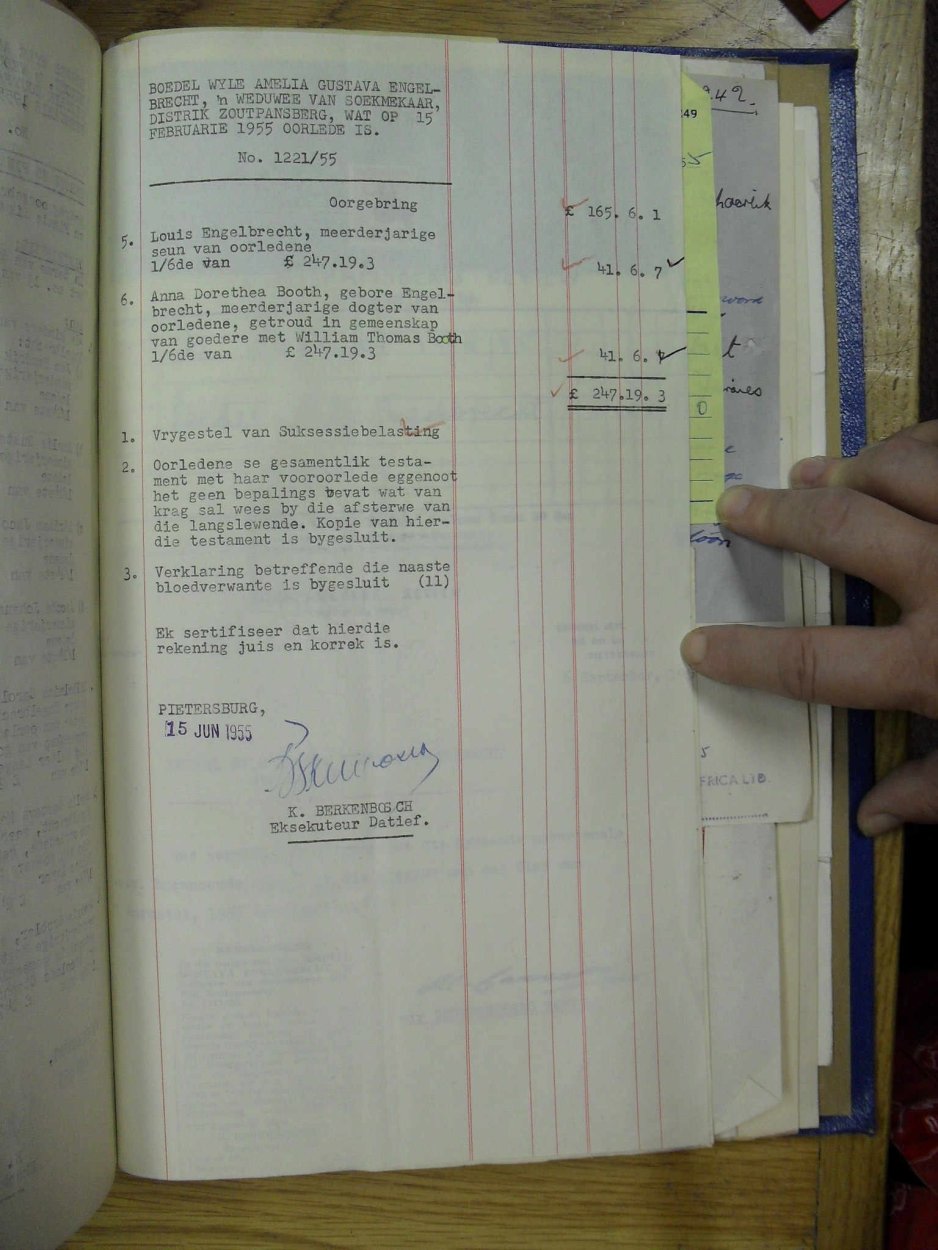 BOEDEL WYLE AMELIA GUSTAVA ENGEL-
BRECHT, 'n WEDUWEE VAN SOEKMEKAAR,
DISTRIK ZOUTPANSBERG, WAT OP 15
FEBRUARIE 1955 OORLEDE IS.
No. 1221/55
Oorgebring £ 165. 6. 1
5. Louis Engelbrecht, meerderjarige
seun van oorledene
1/6de van £ 247.19.3 41. 6. 7
6. Anna Dorethea Booth, gebore Engel-
brecht, meerderjarige dogter van
oorledene, getroud in gemeenskap
van goedere met William Thomas Booth
1/6de van £ 247.19.3 41. 6. 7
£ 247.19. 3
1. Vrygestel van Suksessiebelasting
2. Oorledene se gesamentlik testa-
ment met haar vooroorlede eggenoot
het geen bepalings bevat wat van
krag sal wees by die afsterwe van
die langslewende. Kopie van hier-
die testament is bygesluit.
3. Verklaring betreffende die naaste
bloedverwante is bygesluit (11)
Ek sertifiseer dat hierdie
rekening juis en korrek is.
PIETERSBURG,
15 JUN 1955
K. BERKENBOSCH
Eksekuteur Datief.